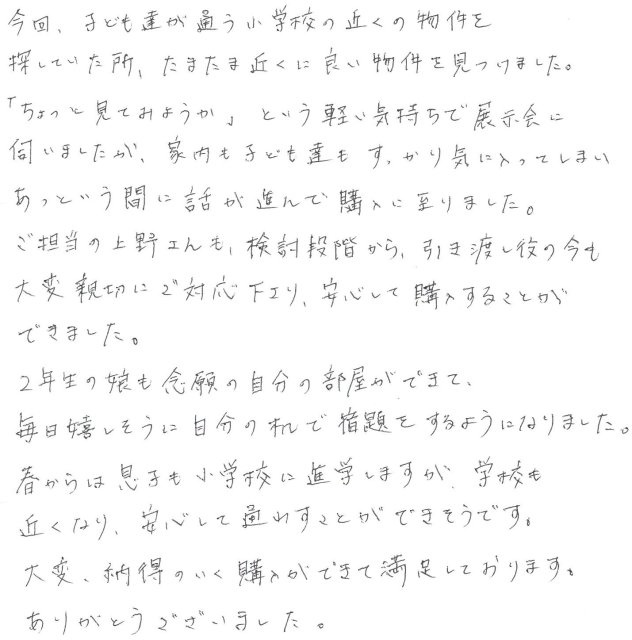 今回、子ども達が通う小学校の近くの物件を
探していた所、たまたま近くに良い物件を見つけました。
「ちょっと見てみようか」という軽い気持ちで展示会に
伺いましたが、家内も子ども達もすっかり気に入ってしまい
あっという間に話が進んで購入に至りました。
ご担当の上野さんも、検討段階から、引き渡し後の今も
大変親切にご対応下さり、安心して購入することが
できました。
2年生の娘も念願の自分の部屋ができて、
毎日嬉しそうに自分の机で宿題をするようになりました。
春からは息子も小学校に進学しますが、学校も
近くなり、安心して通わすことができそうです。
大変、納得のいく購入ができて満足しております。
ありがとうございました。